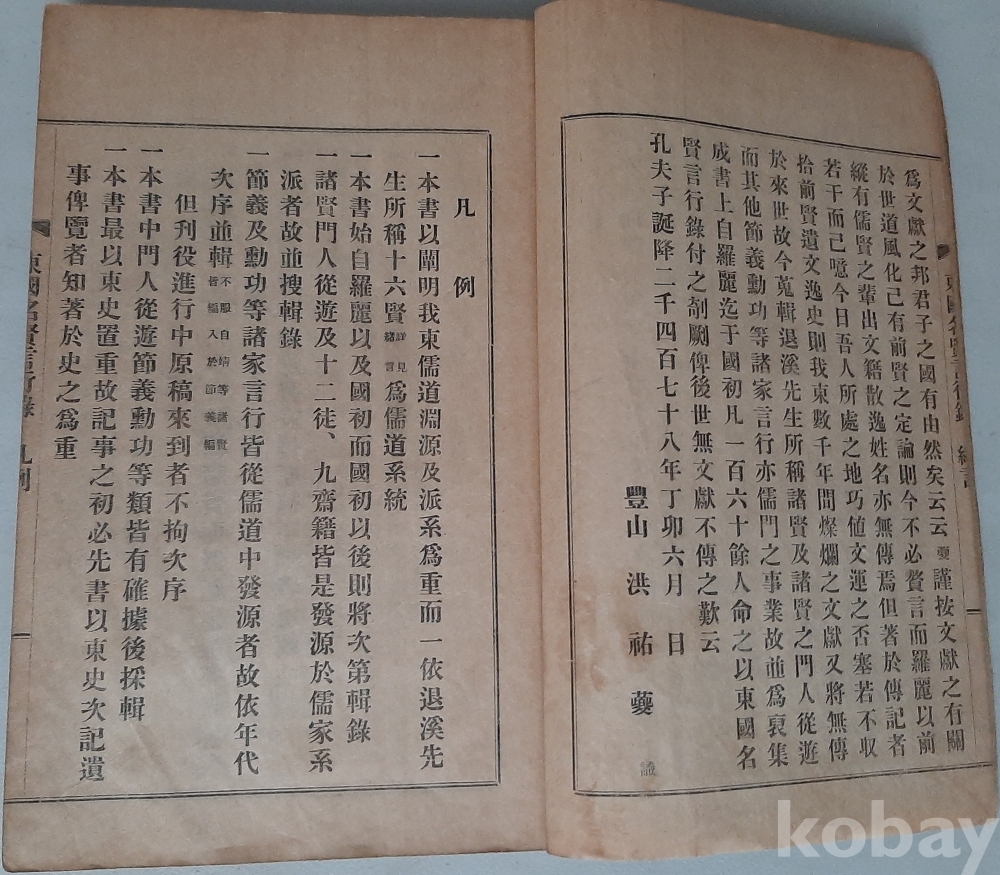 爲文獻之邦君子之國有由然矣云云 夔 謹按文獻之有關
於世道風化已有前賢之定論則今不必贅言而羅麗以前
縱有儒賢之輩出文籍散逸姓名亦無傳焉但著於傳記者
若干而已噫今日吾人所處之地巧値文運之否塞若不収
拾前賢遺文逸史則我東數千年間燦爛之文獻又將無傳
於來世故今蒐輯退溪先生所稱諸賢及諸賢之門人從遊
而其他節義動功等諸家言行亦儒門之事業故並爲裒集
成書上自羅麗迄于國初凡一百六十餘人命之以東國名
賢言行錄付之剞劂俾後世無文獻不傳之歎云
孔夫子誕降二千四百七十八年丁卯六月 日
豐山 洪祐夔 識
東國名賢言行錄
凡例
一本書以闡明我東儒道淵源及派系爲重而一依退溪先
生所稱十六賢 詳見緖言 爲儒道系統
一本書始自羅麗以及國初而國初以後則將次第輯錄
一諸賢門人從遊及十二徒、九齋籍皆是發源於儒家系
派者故並搜輯錄
一節義及動功等諸家言行皆從儒道中發源者故依年代
次序並輯 不服自靖等諸賢皆編入於節義編
但刊役進行中原稿來到者不拘次序
一本書中門人從遊節義動功等類皆有確據後採輯
一本書最以東史置重故記事之初必先書以東史次記遺
事俾覽者知著於史之爲重
東國名賢言行錄 凡例 一
kobay